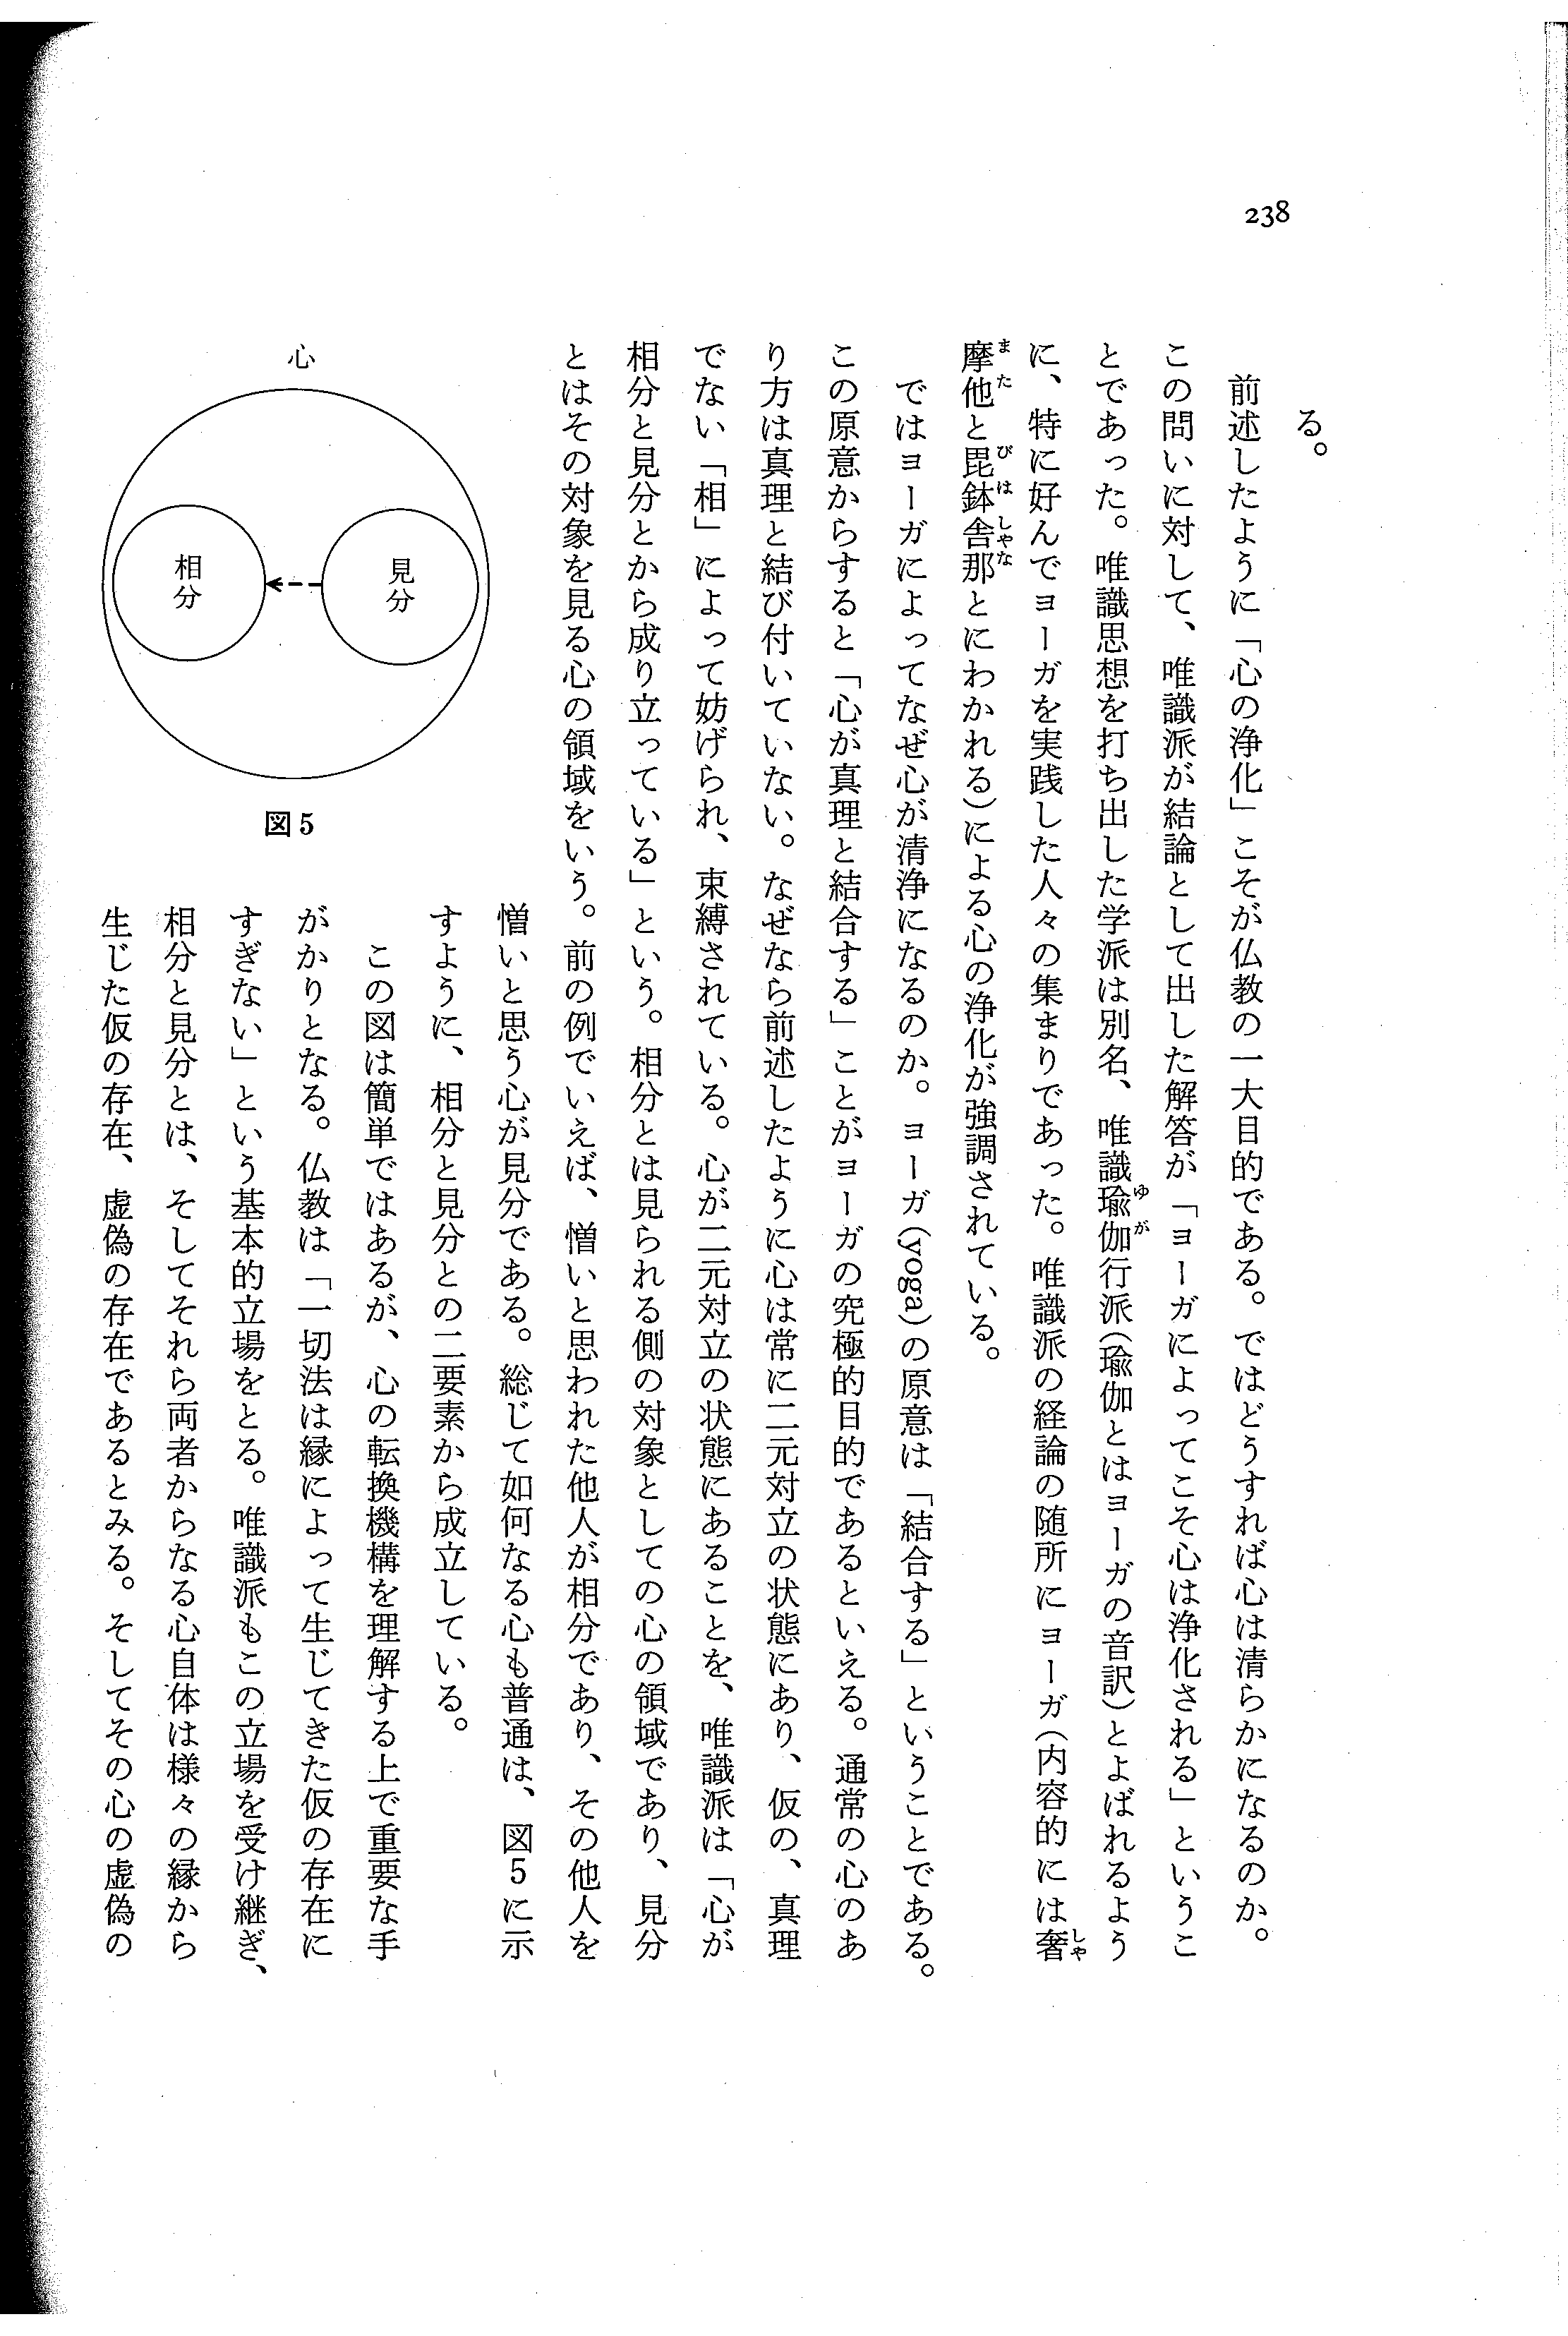 238
る。
前述したように「心の浄化」こそが仏教の一大目的である。ではどうすれば心は清らかになるのか。
この問いに対して、唯識派が結論として出した解答が「ヨーガによってこそ心は浄化される」というこ
とであった。唯識思想を打ち出した学派は別名、唯識瑜伽行派(瑜伽とはヨーガの音訳)とよばれるよう
ゆが
に、特に好んでヨーガを実践した人々の集まりであった。唯識派の経論の随所にヨーガ(内容的には奢
しゃ
摩他と毘鉢舎那とにわかれる)による心の浄化が強調されている。
また びはしゃな
ではヨーガによってなぜ心が清浄になるのか。ヨーガ(yoga)の原意は「結合する」ということである。
この原意からすると「心が真理と結合する」ことがヨーガの究極的目的であるといえる。通常の心のあ
り方は真理と結び付いていない。なぜなら前述したように心は常に二元対立の状態にあり、仮の、真理
でない「相」によって妨げられ、束縛されている。心が二元対立の状態にあることを、唯識派は「心が
相分と見分とから成り立っている」という。相分とは見られる側の対象としての心の領域であり、見分
とはその対象を見る心の領域をいう。前の例でいえば、憎いと思われた他人が相分であり、その他人を
憎いと思う心が見分である。総じて如何なる心も普通は、図5に示
すように、相分と見分との二要素から成立している。
この図は簡単ではあるが、心の転換機構を理解する上で重要な手
がかりとなる。仏教は「一切法は縁によって生じてきた仮の存在に
すぎない」という基本的立場をとる。唯識派もこの立場を受け継ぎ、
相分と見分とは、そしてそれら両者からなる心自体は様々の縁から
生じた仮の存在、虚偽の存在であるとみる。そしてその心の虚偽の
心
見分
相分
図5